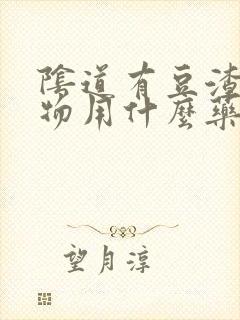 陰道有豆渣
物用什麼藥
望月淳